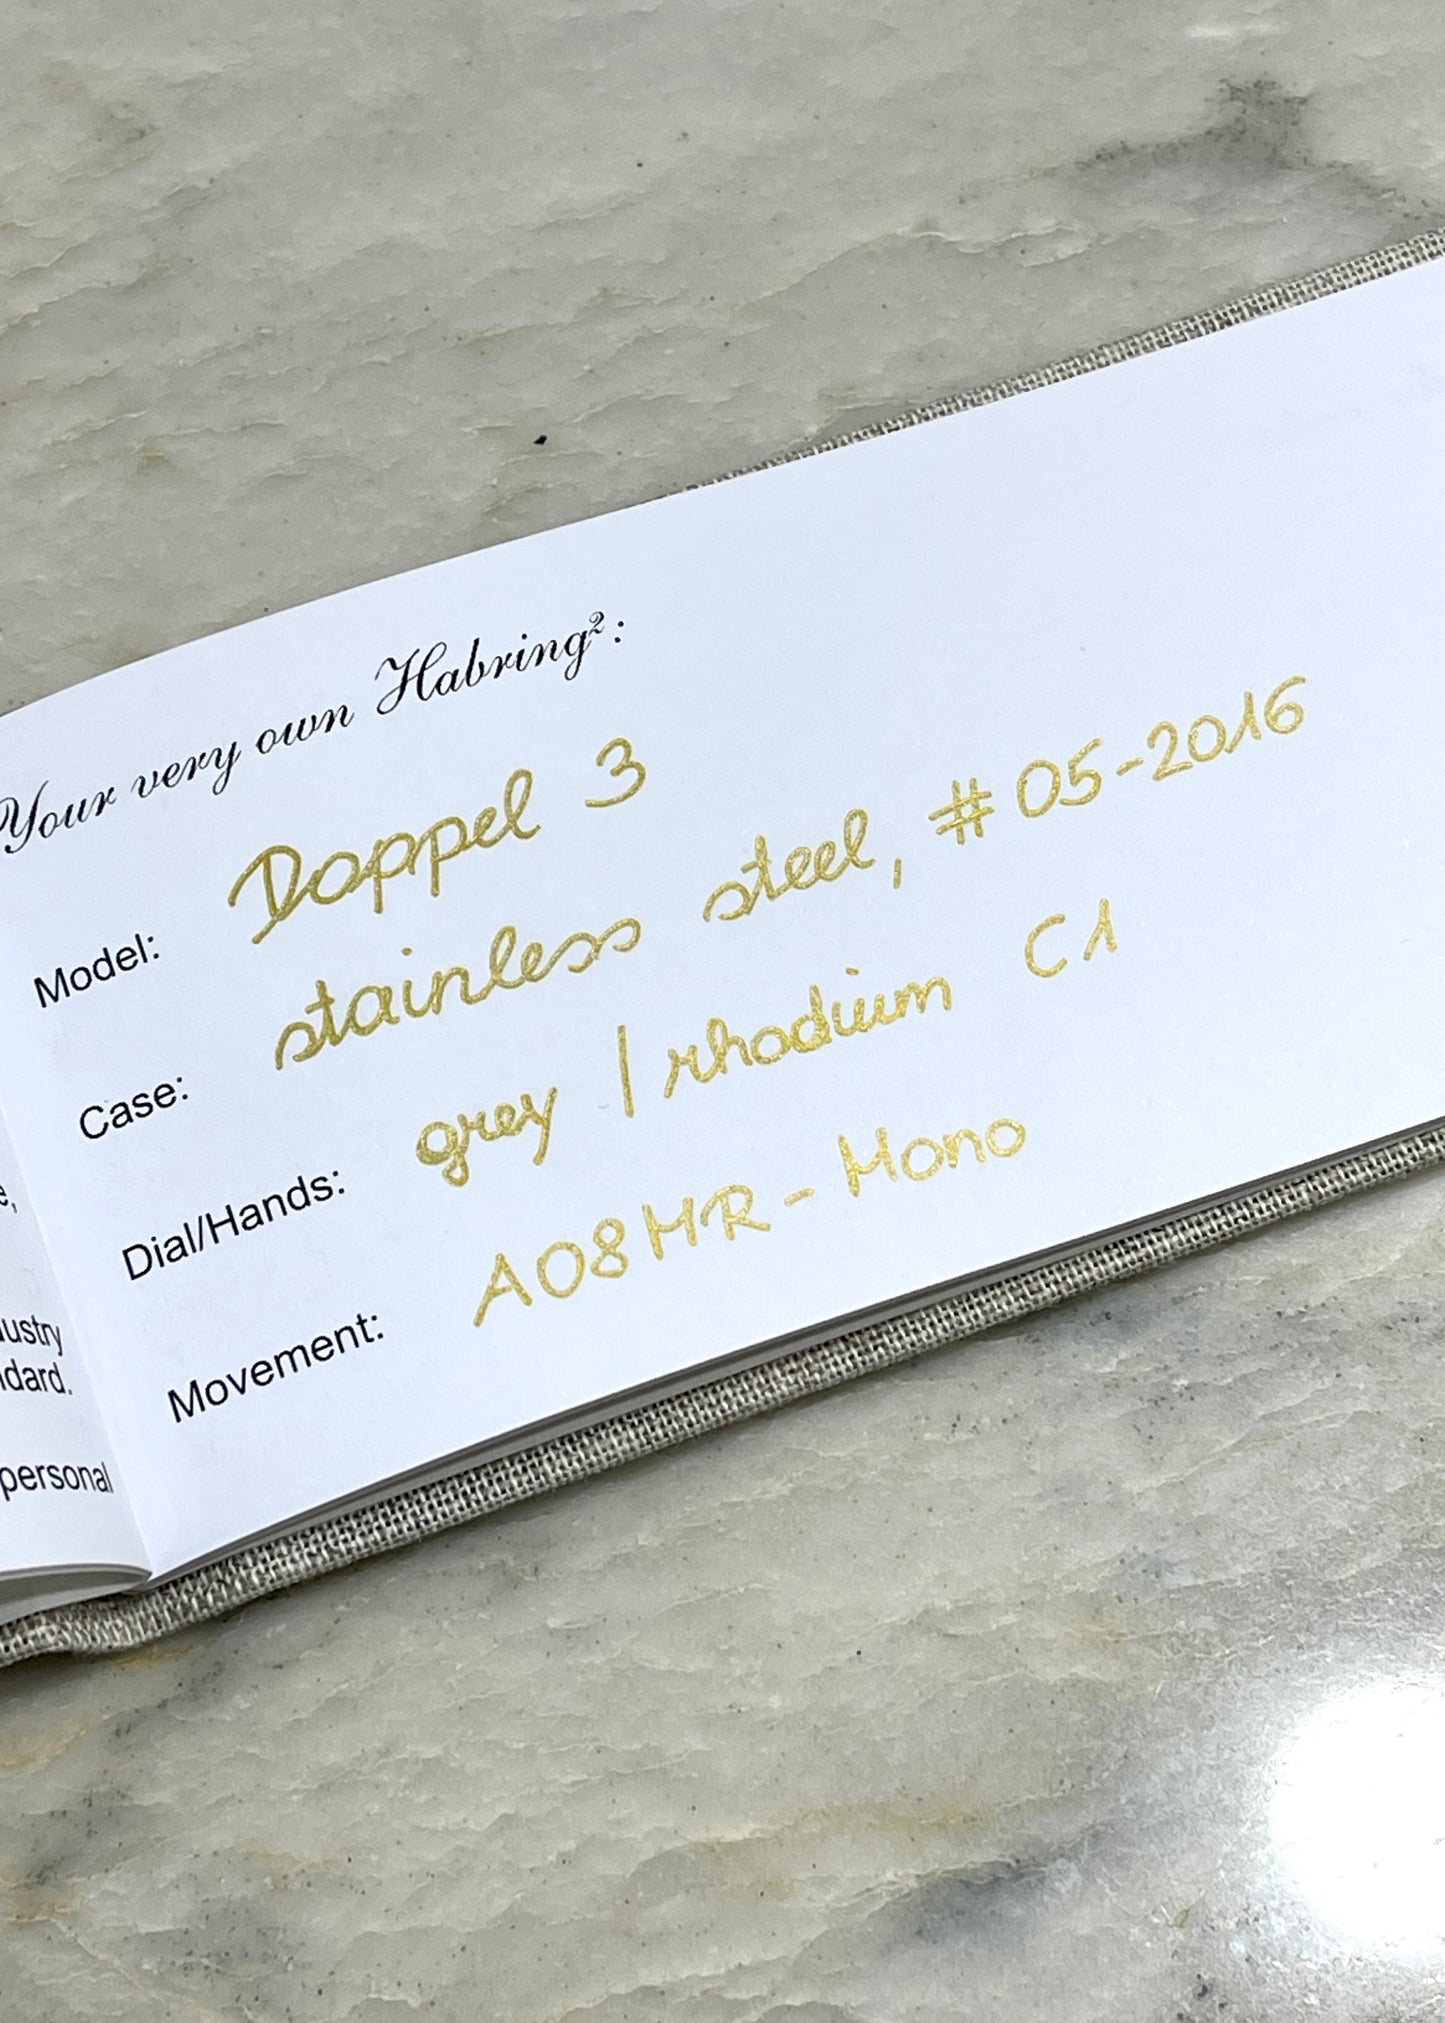 Your very own Habring²:
Model: Doppel 3
Case: stainless steel, #05-2016
Dial/Hands: grey / rhodium C1
Movement: A08MR-Mono
e,
ustry
dard.
personal